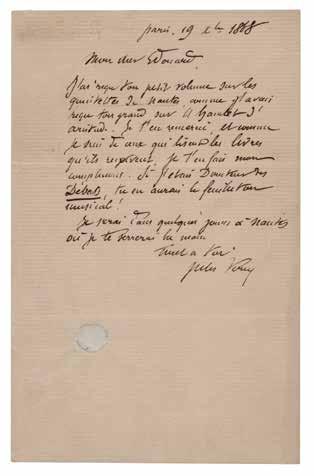 Paris, 19 Xbre 1868
Mon cher Edouard,
J'ai reçu ton petit volume sur les
de Nantes, comme j'avais
reçu ton grand sur A. Hamlet d'
. Je t'en remercie, et comme
je suis de ceux qui lisent les livres
qu'ils reçoivent, je t'en fais mon
compliment. Si j'étais Directeur des
Débats, tu en aurais le feuilleton
musical!
Je serai dans quelques jours à Nantes
où je te serrerai la main
Tout à toi
Jules Verne